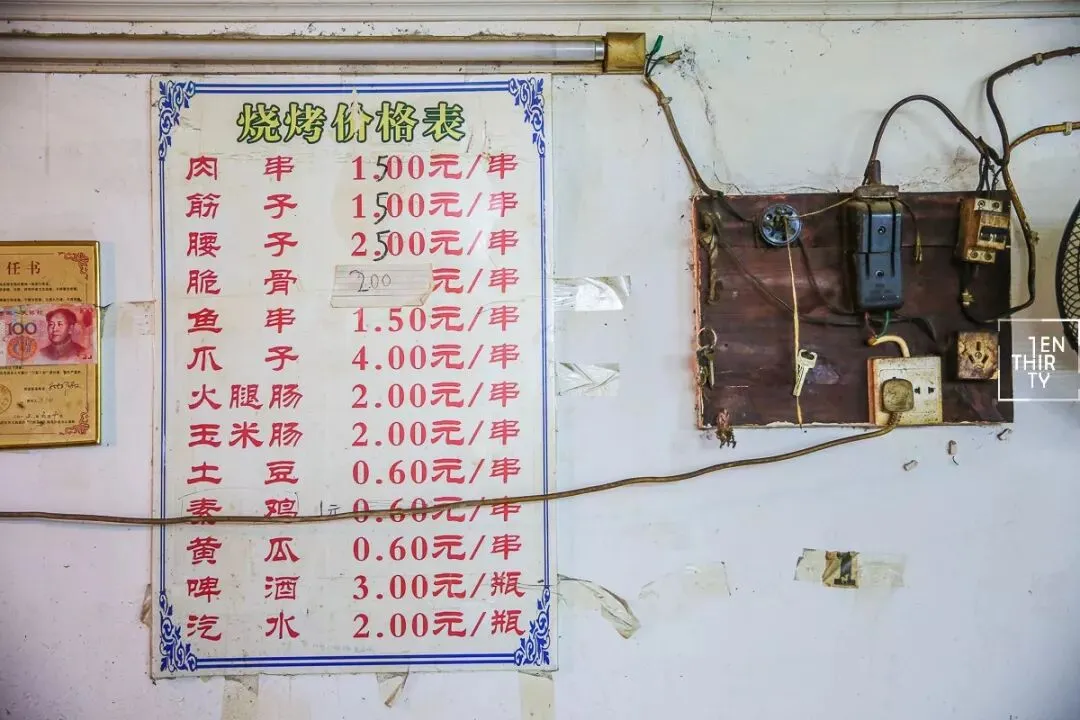 烧烤价格表
肉串 1.500元/串
筋子 1.500元/串
腰子 2.500元/串
脆骨 200 元/串
鱼串 1.50元/串
爪子 4.00元/串
火腿肠 2.00元/串
玉米肠 2.00元/串
土豆 0.60元/串
素鸡 1元 0.60元/串
黄瓜 0.60元/串
啤酒 3.00元/瓶
汽水 2.00元/瓶
任书
100
1
1EN
THIR
TY